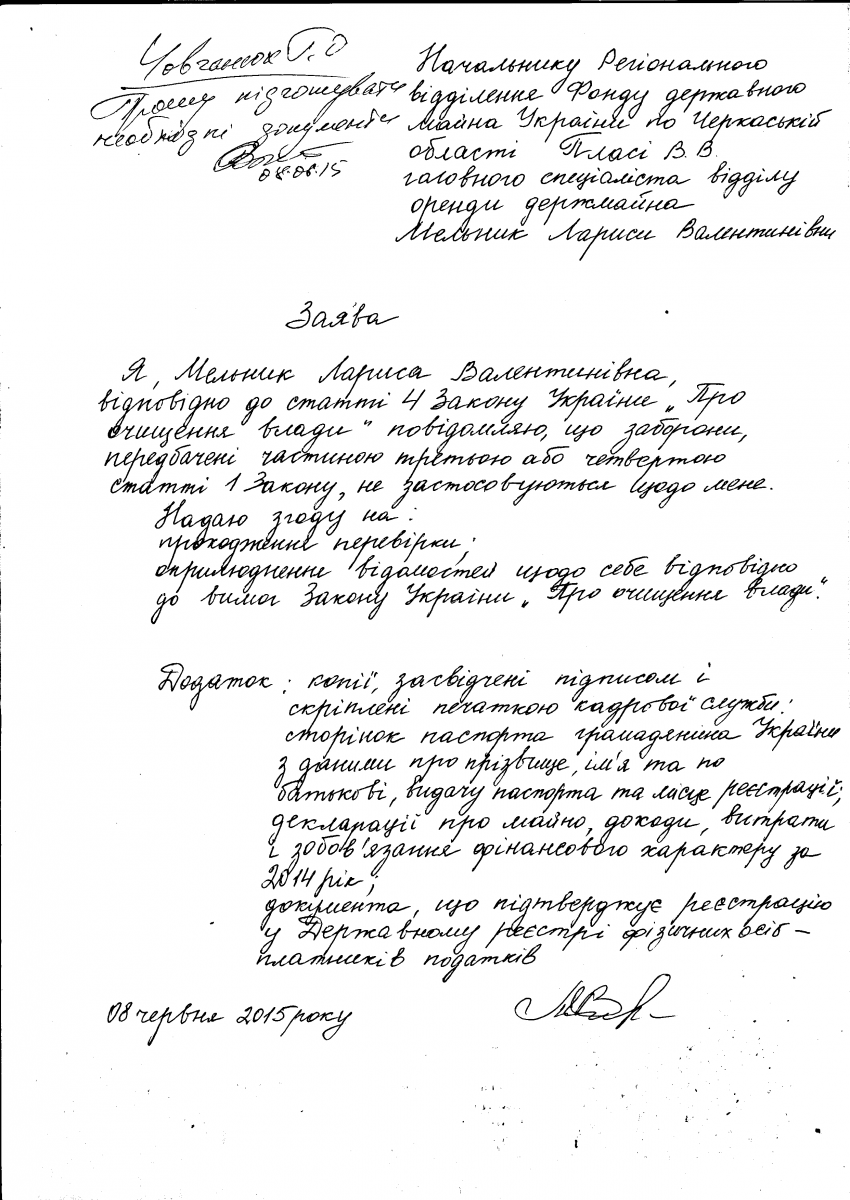 Човганюк Г.О
Прошу підготувати
необхідні документи
08.06.15
Начальнику Регіонального
відділення Фонду державного
майна України по Черкаській
області Пласі В.В.
головного спеціаліста відділу
оренди держмайна
Мельник Лариси Валентинівни
Заява
Я, Мельник Лариса Валентинівна,
відповідно до статті 4 Закону України „Про
очищення влади" повідомляю, що заборони,
передбачені частиною третьою або четвертою
статті 1 Закону, не застосовуються щодо мене.
Надаю згоду на:
проходження перевірки;
оприлюднення відомостей щодо себе відповідно
до вимог Закону України „Про очищення влади".
Додаток: копії, засвідчені підписом і
скріплені печаткою кадрової служби:
сторінок паспорта громадянина України
з даними про прізвище, ім'я та по
батькові, видачу паспорта та місце реєстрації;
декларації про майно, доходи, витрати
і зобов'язання фінансового характеру за
2014 рік;
документа, що підтверджує реєстрацію
у Державному реєстрі фізичних осіб –
платників податків
08 червня 2015 року